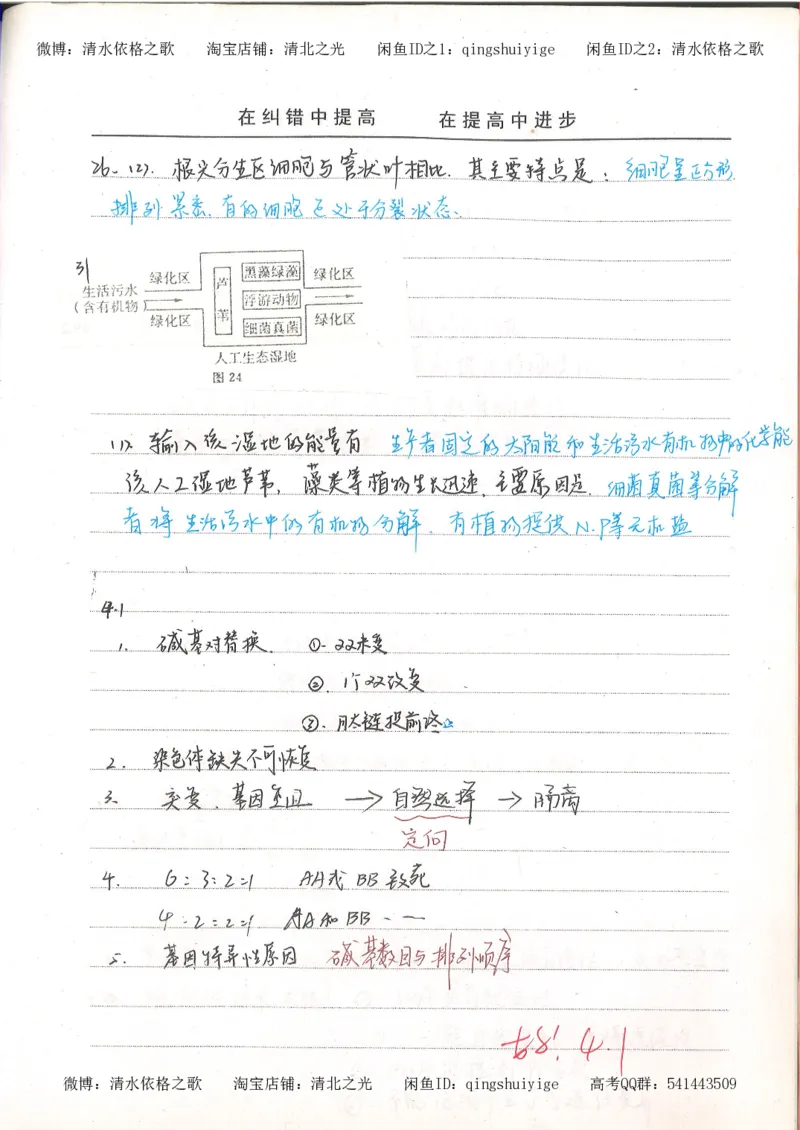 微博：清水依格之歌 淘宝店铺：清北之光 闲鱼ID之1：qingshuiyige 闲鱼ID之2：清水依格之歌
在纠错中提高 在提高中进步
26. (2). 根尖分生区细胞与管状叶相比. 其主要特点是：细胞呈正方形,
排列紧密, 有的细胞正处于分裂状态.
31
生活污水
(含有机物)
绿化区
绿化区
芦苇
黑藻绿藻
浮游动物
细菌真菌
绿化区
绿化区
人工生态湿地
图 24
(1). 输入该湿地的能量有 生产者固定的太阳能和生活污水有机物中的化学能
该人工湿地芦苇, 藻类等植物生长迅速, 主要原因是. 细菌真菌等分解
者将生活污水中的有机物分解. 有植物提供 N.P等无机盐
4.1
1. 碱基对替换. ①. 双未变
②. 1个双改变
③. 肽链提前终止
2. 染色体缺失不可恢复
3. 突变. 基因重组 → 自然选择 → 隔离
定向
4. 6:3:2:1 AA或BB致死
4:2:2:1 AA和BB - -
5. 基因特异性原因 碱基数目与排列顺序
4.1
微博：清水依格之歌 淘宝店铺：清北之光 闲鱼ID：qingshuiyige 高考QQ群：541443509